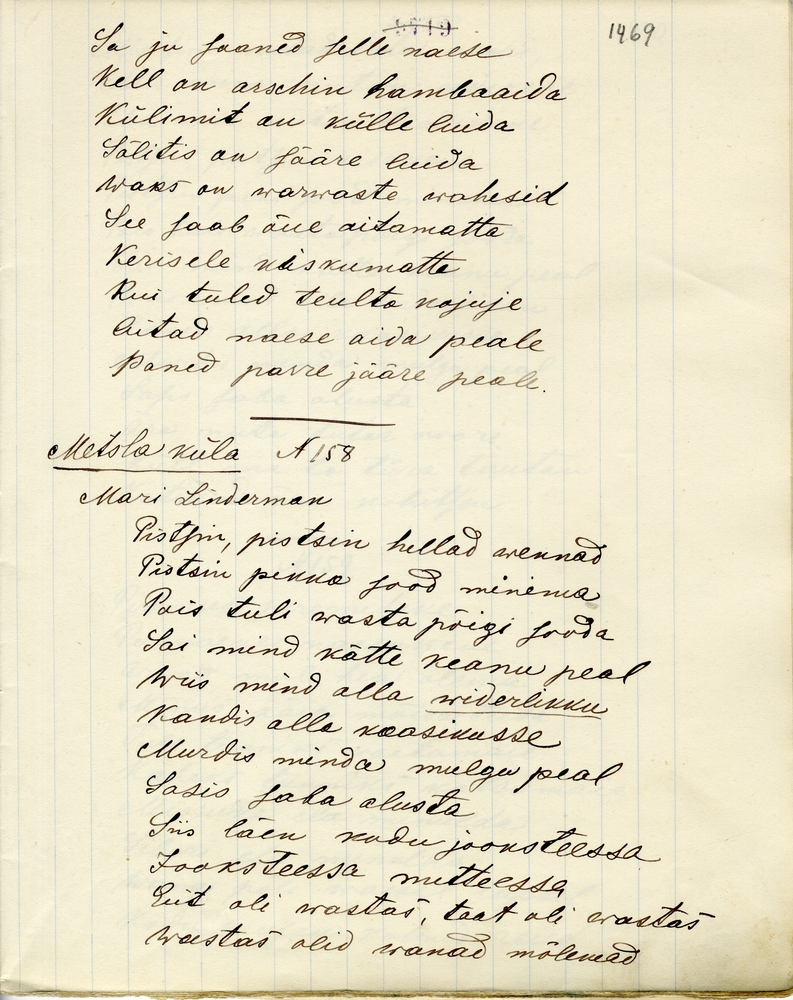 1469
Sa ju saaned selle naese
Kell on arschin hambaaida
Külimit on külle luida
Sälitis on sääre luida
Waks on warwaste wahesid
See saab õue aitamatta
Kerisele käskumatta
Kui tuled teulta kojuje
Aitad naese aida peale
Paned parre jääre peale.
Metsla küla N 158
Mari Linderman
Pistsin, pistsin hellad wennad
Pistsin pikka sood minema
Pois tuli wasta põigi sooda
Sai mind kätte keanu peal
Wiis mind alla widerlikku
Kandis alla kaasikusse
Murdis minda mulgu peal
Sasis saba alusta
Siis läen kodu jooksteessa
Jooksteessa nutteessa
Eit oli wastas, taat oli wastas
Wastas olid wanad mõlemad